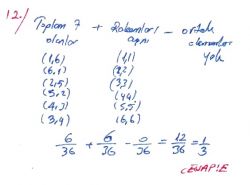 12./ Toplam 7 + Rakamları - ortak
olanlar aynı elemanlar
yok
(1,6) (1,1)
(6,1) (2,2)
(2,5) (3,3)
(5,2) (4,4)
(4,3) (5,5)
(3,4) (6,6)
6/36 + 6/36 - 0/36 = 12/36 = 1/3
CEVAP:E